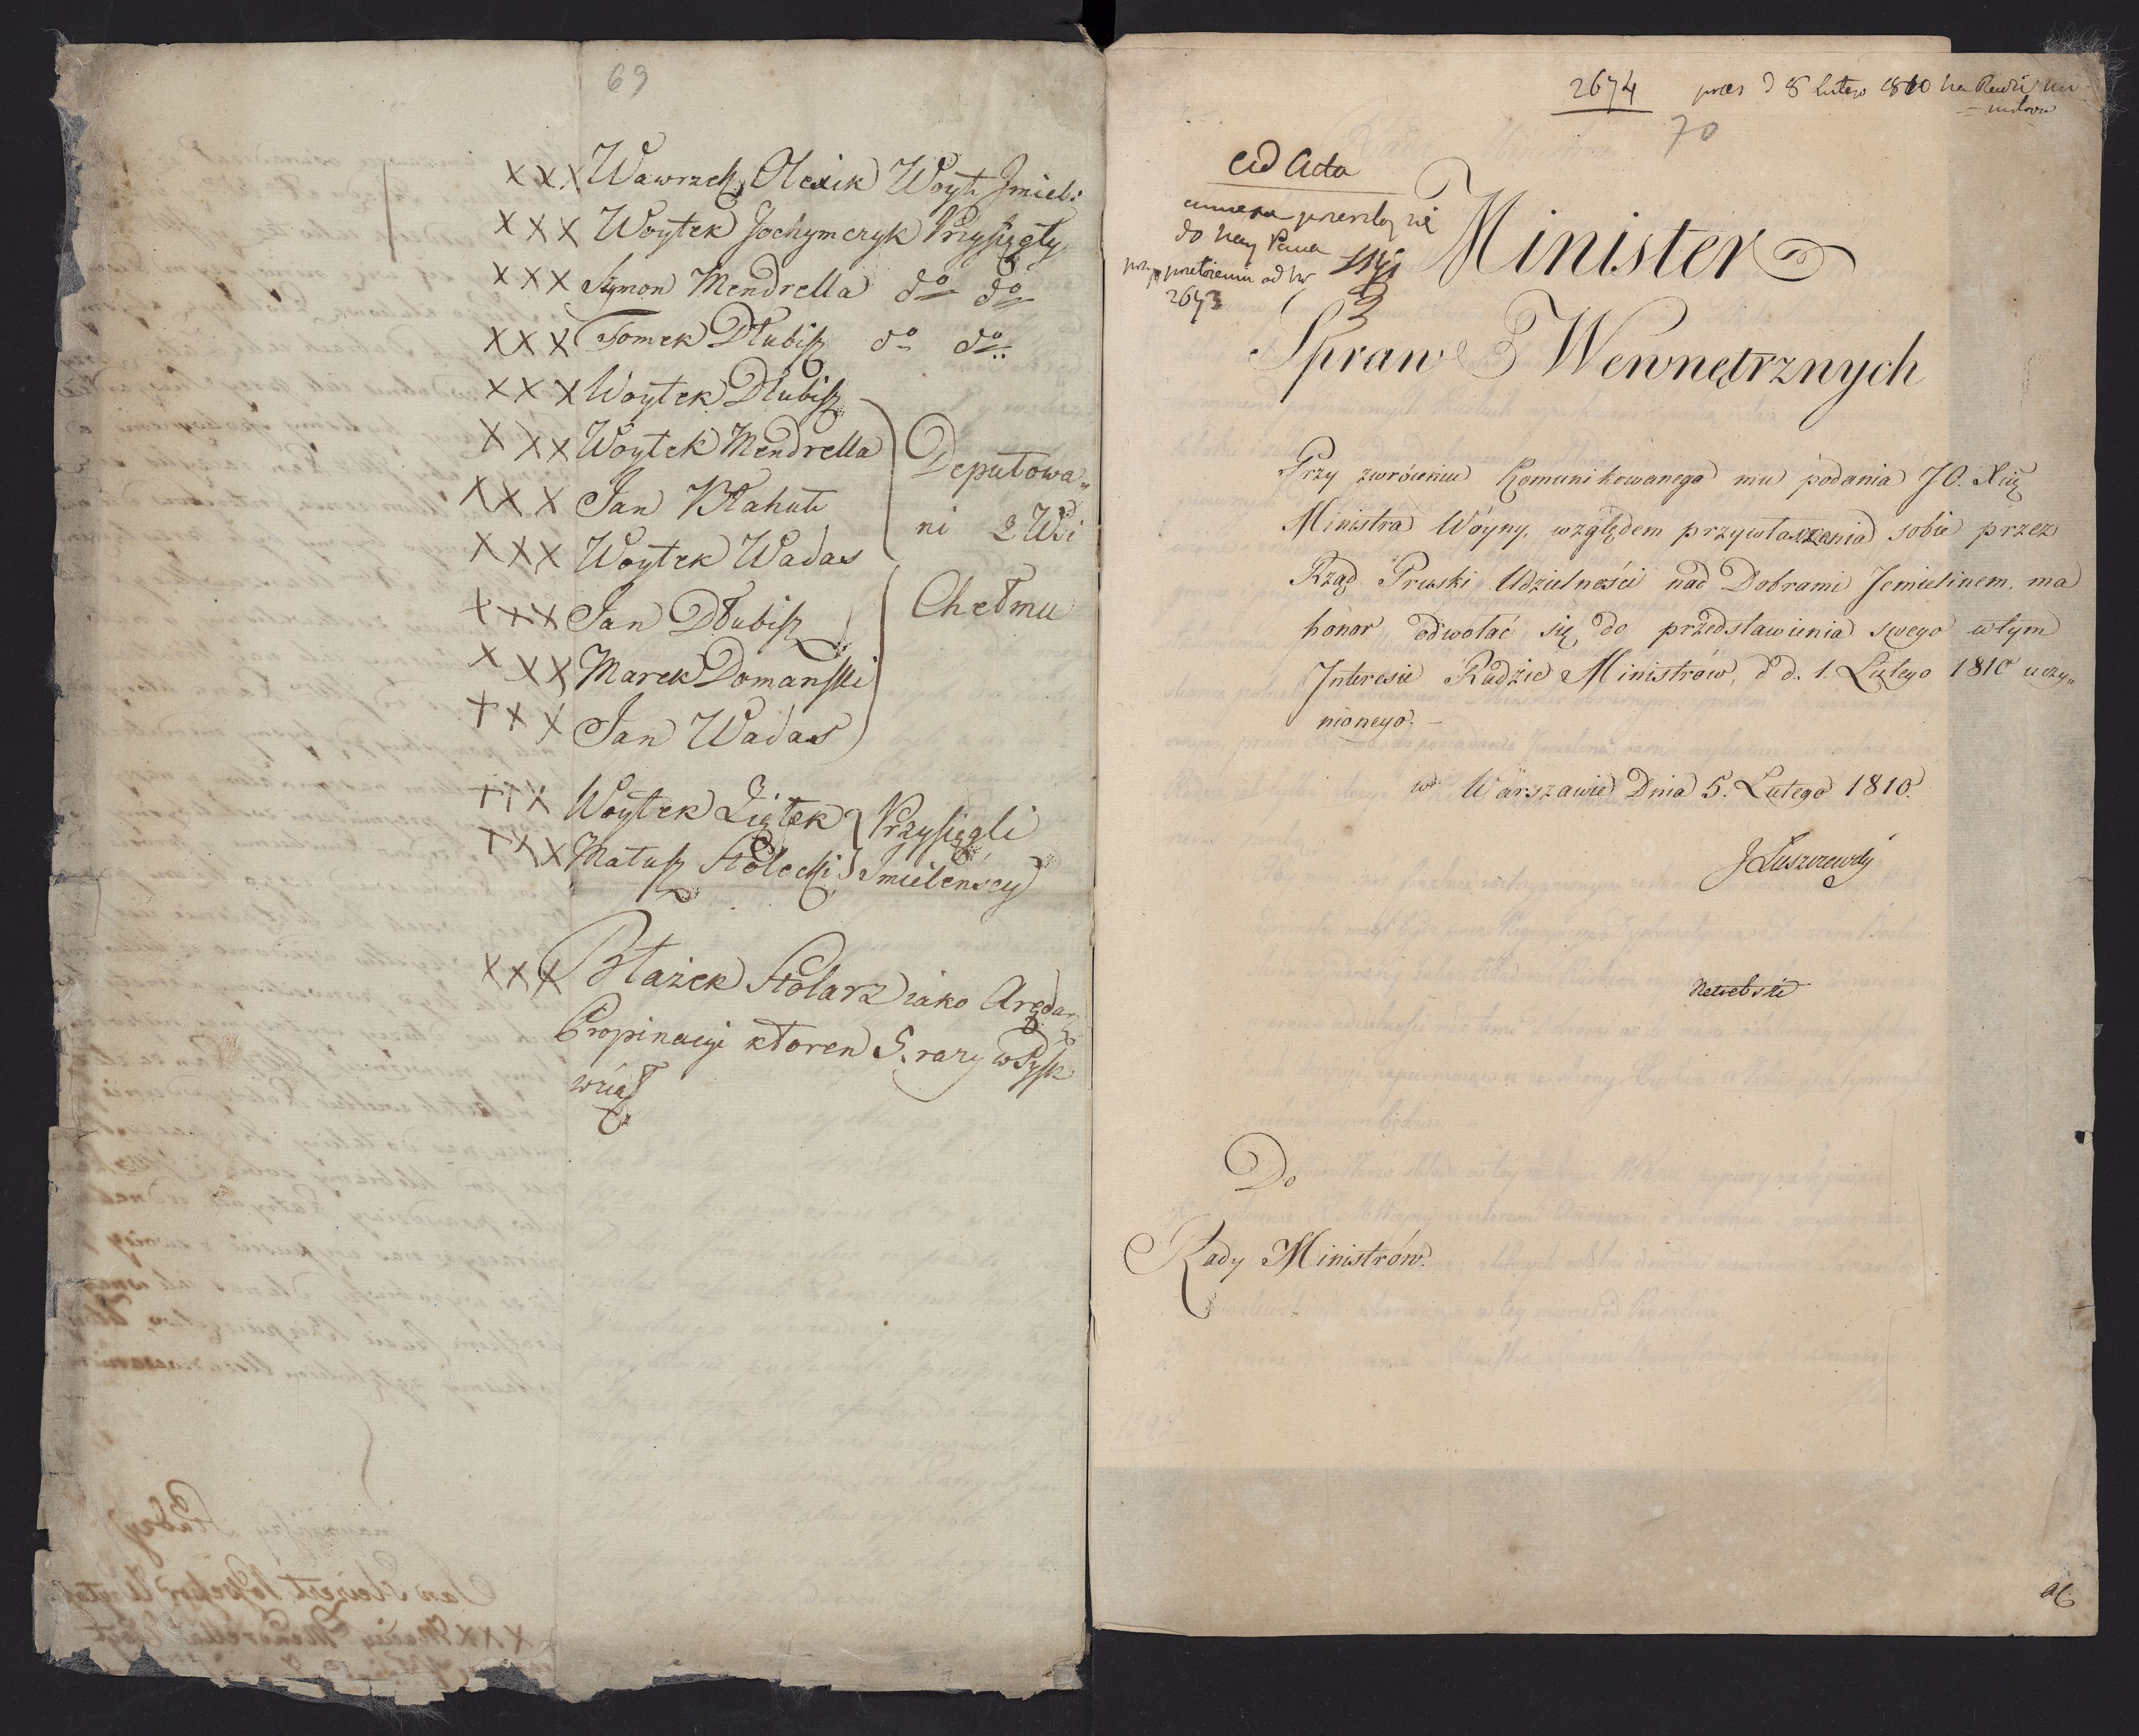 69
XXX Wawrzek Olexik Woyt Jmiel:
XXX Woytek Jochymczyk Przysięgły
XXX Szymon Mendrella do do
XXX Tomek Dłubisz do do
XXX Woytek Dłubisz
XXX Woytek Mendrella
XXX Jan Kłahut
XXX Woytek Wadas
XXX Jan Dłubisz
XXX Marek Domanski
XXX Jan Wadas
Deputowa„
ni z Wsi
Chełmu
XXX Woytek Ziętek Przysięgli
XXX Matusz Stolecki Jmielensey
XXX Błażek Stolarz iako Arędarz
Propinacyi ktoren 5. razy w Pysk
wziął
Jan
XXX Maciey Mendrella Woyt
2674 prez d 8 lutego 1810 na Radzi Mi-
=nistrow
70
Ad Acta
do
2673
Minister
Spraw Wewnętrznych
Przy zwróceniu Komunikowanego mu podania JO. Xcia
Ministra Woyny, względem przywłaszczenia sobie przez
Rząd Pruski Udzielności nad Dobrami Jemielinem, ma
honor odwołać się do przedstawienia swego w tym
Interesie Radzie Ministrów, d d. 1. Lutego 1810 uczy„
nionego. –
w Warszawie Dnia 5. Lutego 1810.
J Łuszczewski
Do
Rady Ministrów.